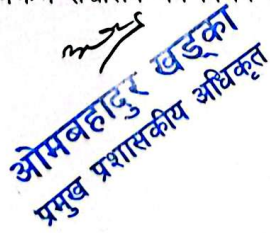 ओमबहादुर खड्का
प्रमुख प्रशासकीय अधिकृत